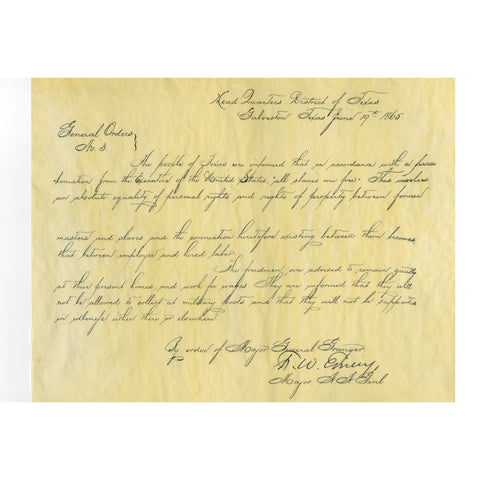 Head Quarters District of Texas
Galveston Texas June 19th 1865.
General Orders
No. 3.
The people of Texas are informed that in accordance with a
from the Executive of the United States, "all slaves are free." This involves
an absolute equality of personal rights and rights of between former
masters and slaves and the connection heretofore existing between them becomes
that between employer and hired labor.
The freedmen are advised to remain
at their present homes, and work for wages. They are informed that they will
not be allowed to collect at military posts and that they will not be supported
in idleness either there or elsewhere.
By order of Major General Granger
F. W. Emery
Major A. A. Genl